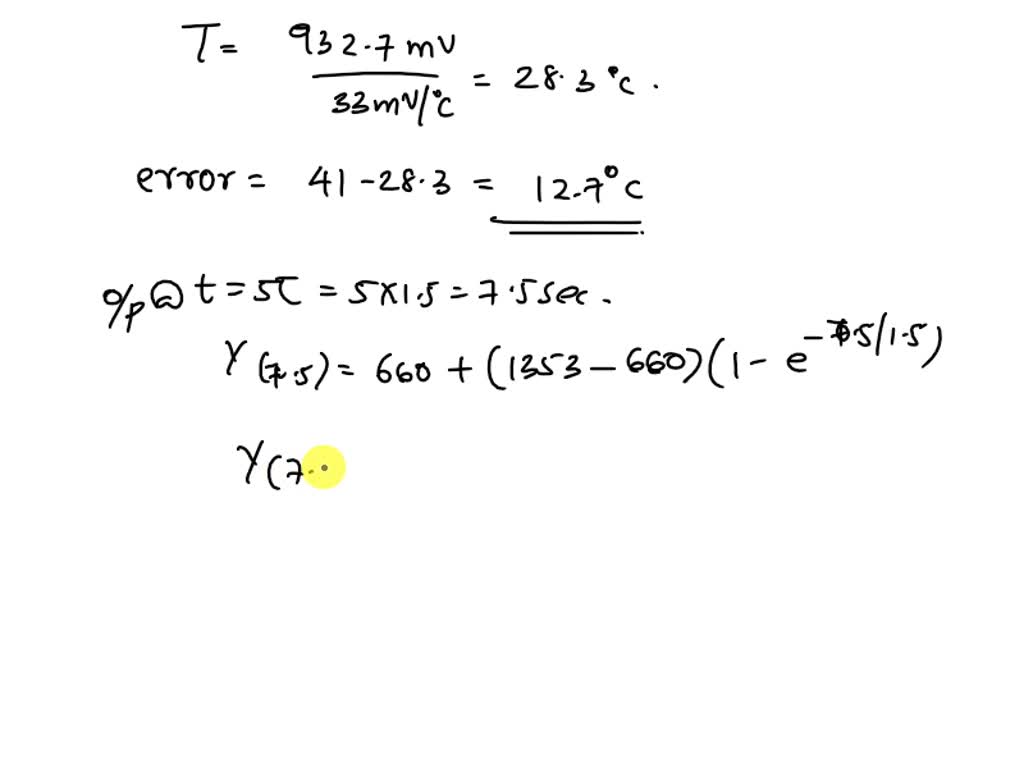 T = 932.7 mV / 33 mV/°C = 28.3 °C .
error = 41 - 28.3 = 12.7°C
o/p @ t = 5τ = 5×1.5 = 7.5 sec .
Y(7.5) = 660 + (1353 - 660)(1 - e^-7.5/1.5)
Y(7.